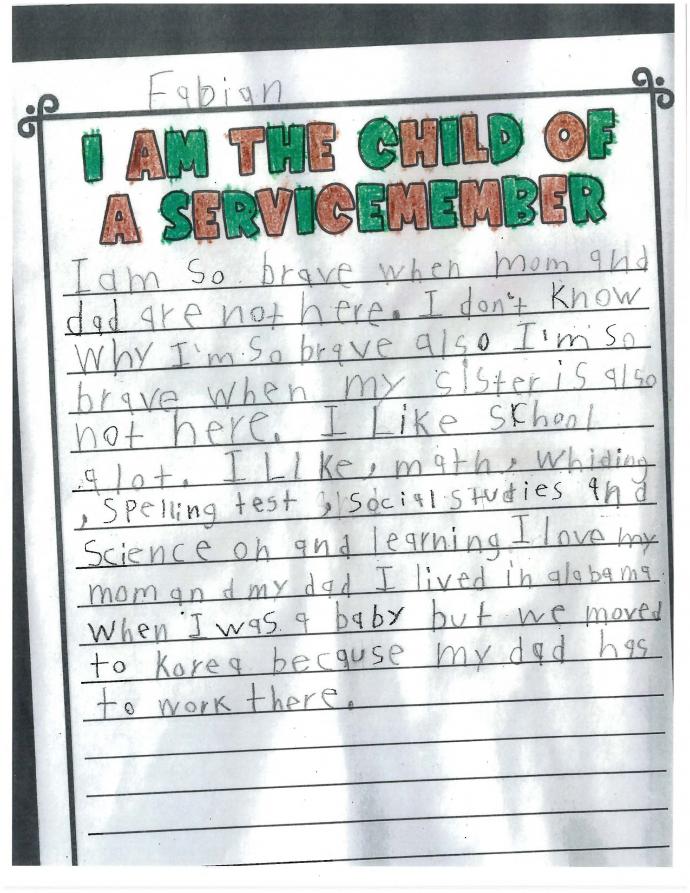 Fabian
I AM THE CHILD OF
A SERVICEMEMBER
I am so brave when mom and
dad are not here. I don't Know
Why I'm so brave also I'm so
brave when my sister is also
not here. I Like School
alot. I LIke, math, whiding
, spelling test, social studies and
Science oh and learning I love my
mom and my dad I lived in alabama
when I was a baby but we moved
to korea because my dad has
to work there.